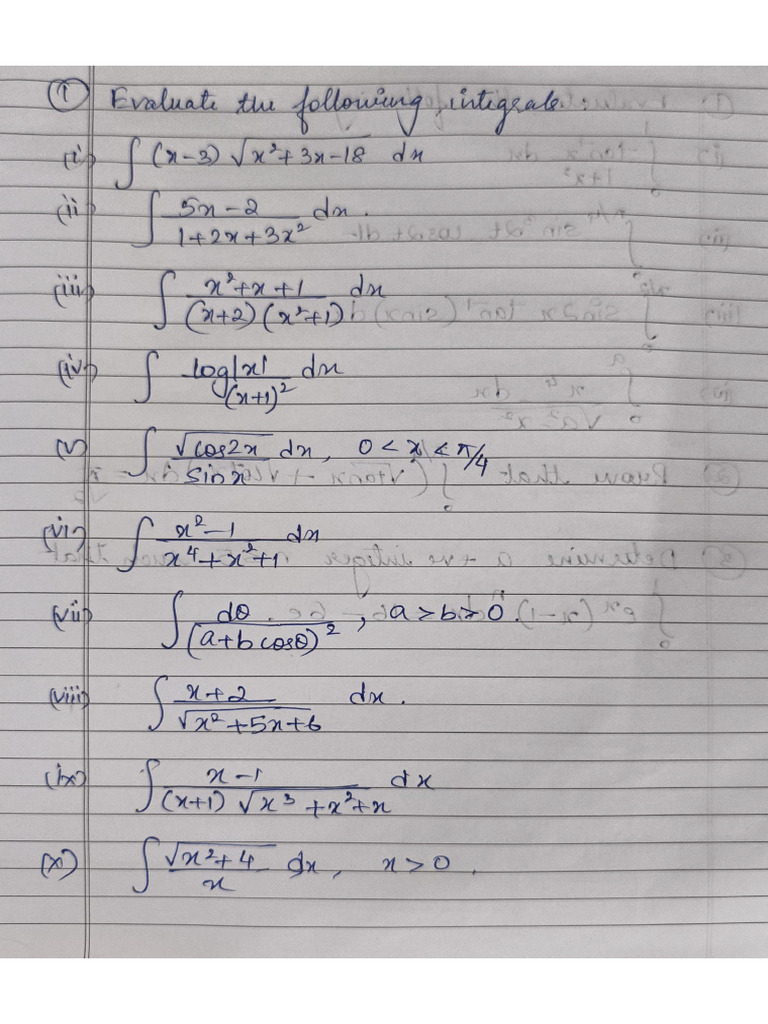 ① Evaluate the following integrals:
(i) ∫ (x-3) √(x²+3x-18) dx
(ii) ∫ (5x-2)/(1+2x+3x²) dx.
(iii) ∫ (x²+x+1)/((x+2)(x²+1)) dx
(iv) ∫ log|x|/(x+1)² dx
(v) ∫ √(cos2x)/sin x dx, 0 < x < π/4
(vi) ∫ (x²-1)/(x⁴+x²+1) dx
(vii) ∫ dθ/(a+b cosθ)², a > b > 0.
(viii) ∫ (x+2)/√(x²+5x+6) dx.
(ix) ∫ (x-1)/((x+1) √(x³+x²+x)) dx
(x) ∫ √(x²+4)/x dx, x > 0.